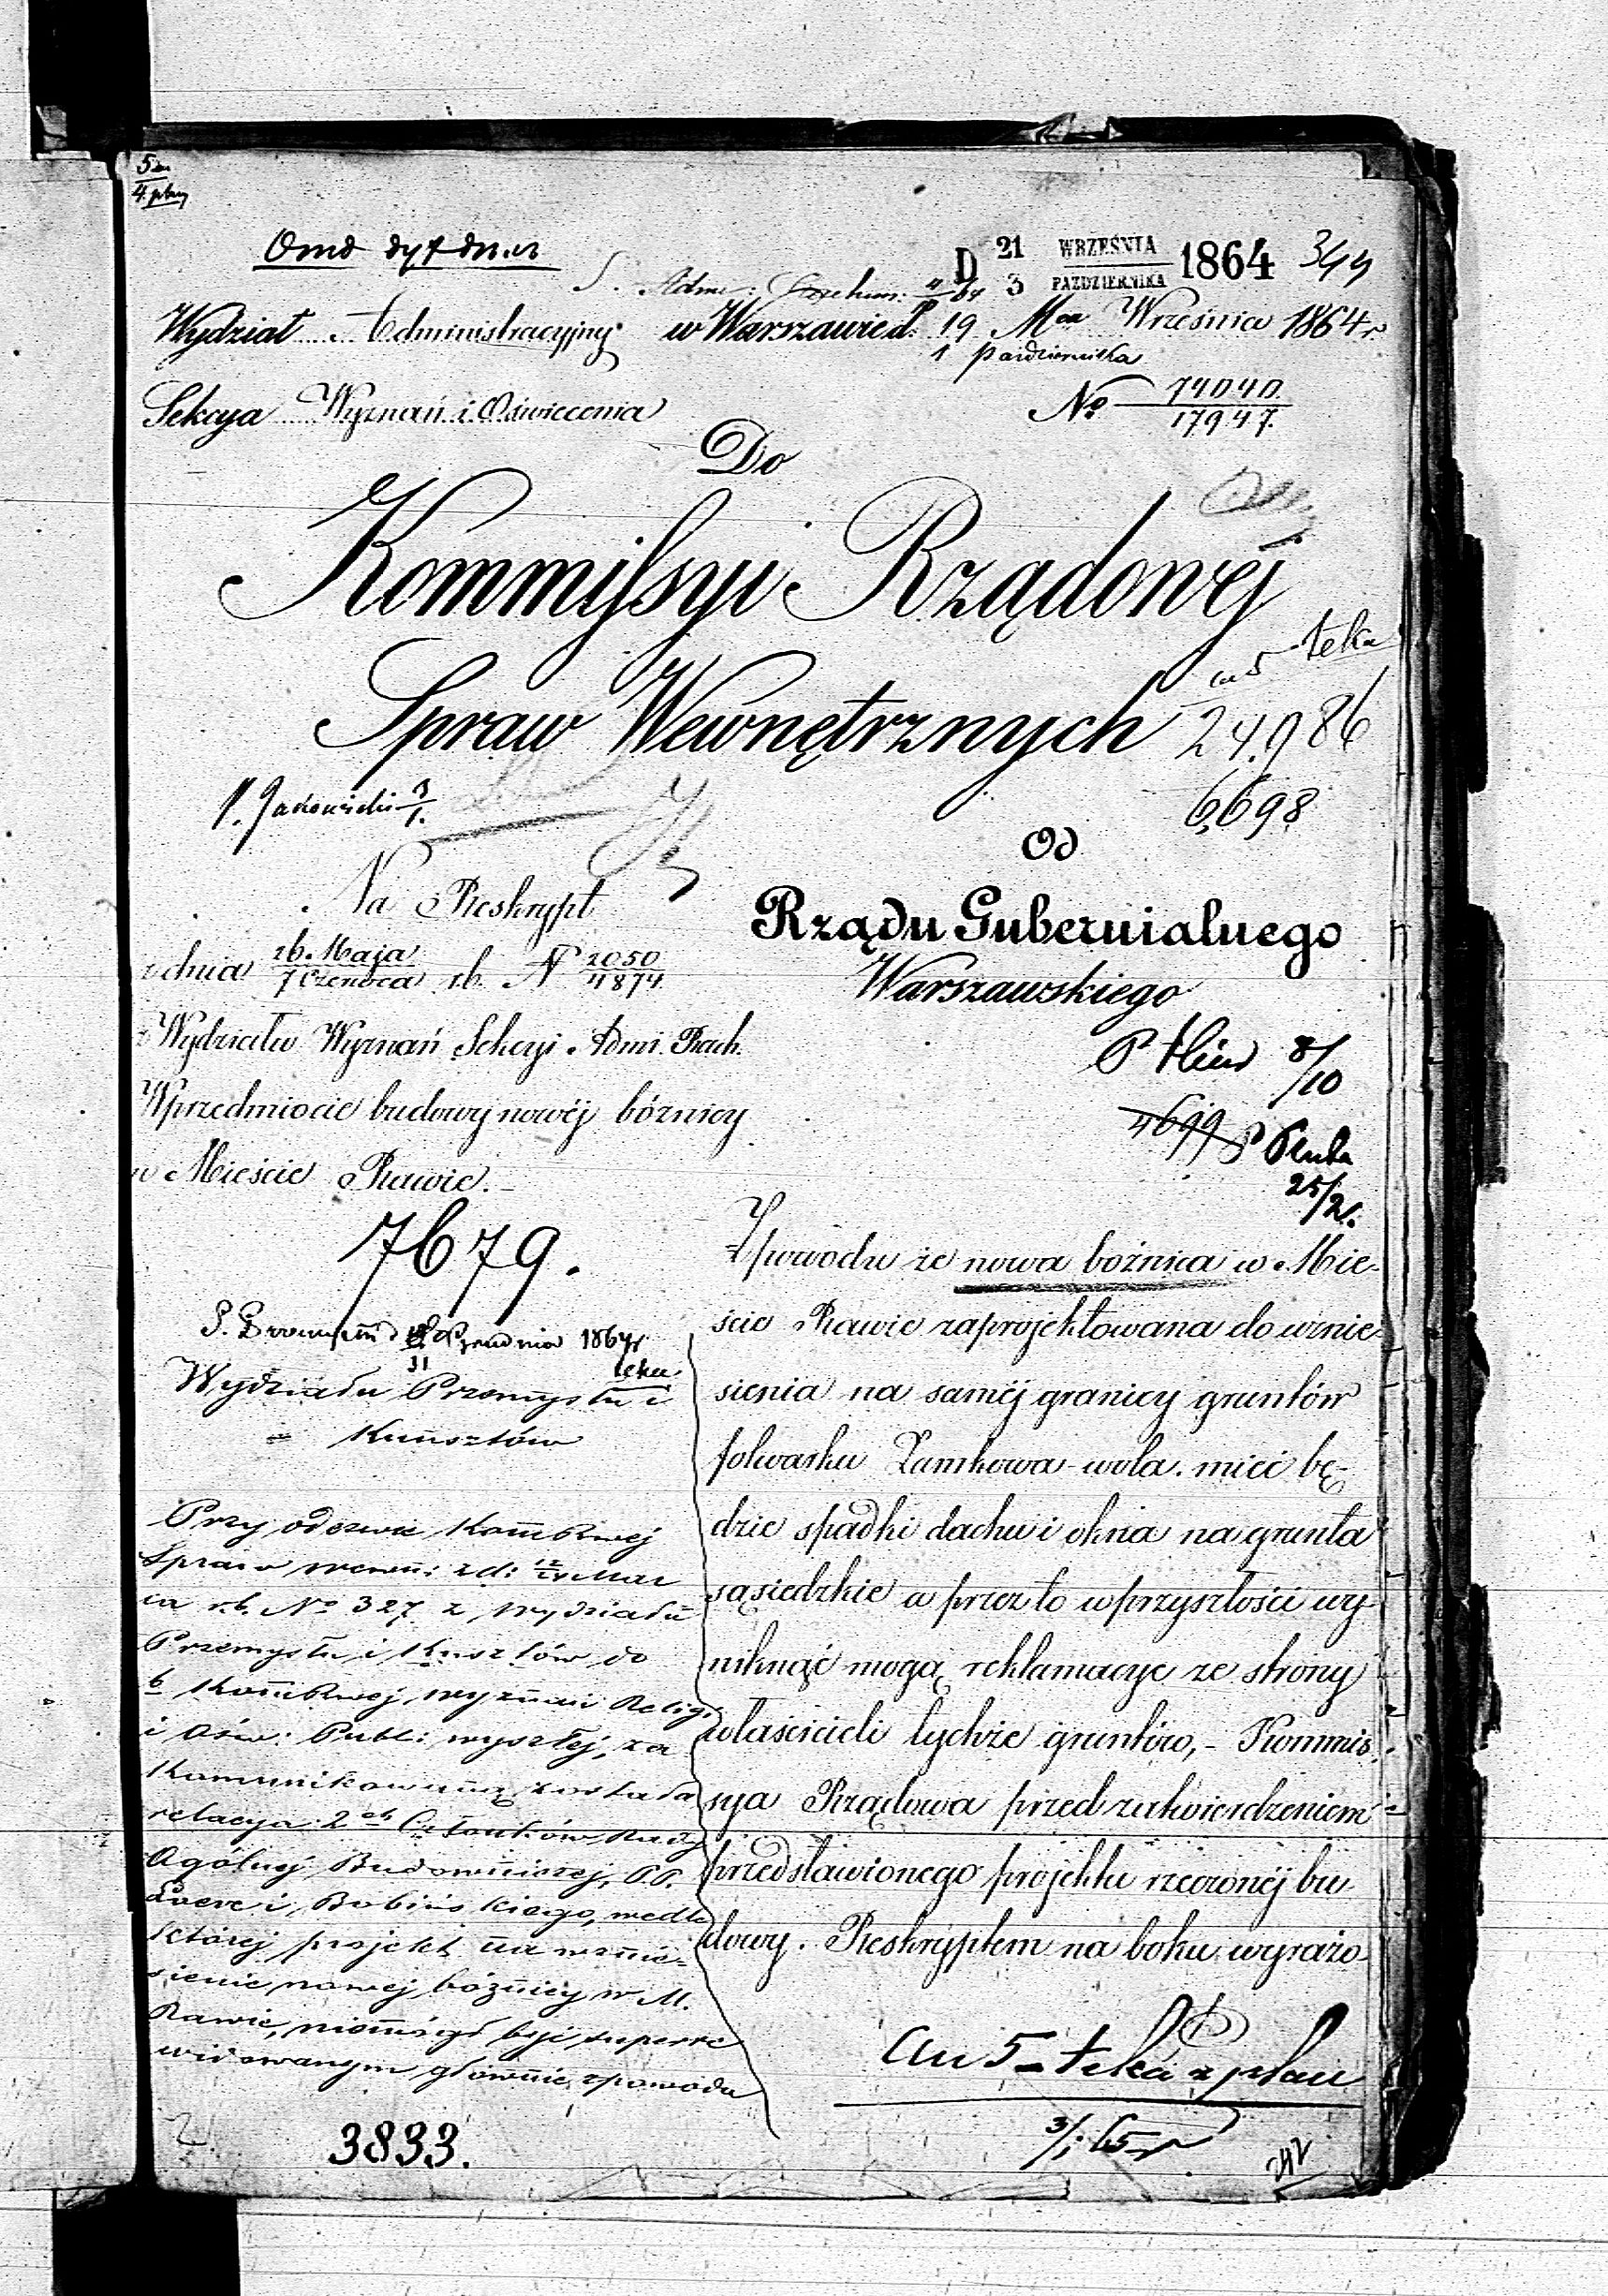 4. plany
D 21 WRZEŚNIA 1864 349
3 PAZDZIERNIKA
Wydział Administracyjny w Warszawie d. 19 Mca Września 1864 r.
1 Października
Sekcya Wyznań i Oświecenia
No 74040
17947.
Do
Kommissyi Rządowéj
Spraw Wewnętrznych
teka
24.986
6698
Od
Rządu Gubernialnego
Warszawskiego
Na Reskrypt
z dnia 26. Maja r.b. N 2050
7 Czerwca 4874
z Wydziału Wyznań Sekcyi Admi. Rach.
W przedmiocie budowy nowéj bóżnicy
w Mieście Rawie.
8/10
4699
25/2.
7679.
Grudnia 1864 r
31
teka
Wydziału Przemysłu i
Kunsztów
Przy odezwie Komm Rwej
Spraw wewn: z d: 12 Mar
ca r.b. No 327 z Wydziału
Przemysłu i Kunsztów do
b Komm Rwej wyznań Relig:
i Ośw: Publ: wyszłej, za
komunikowaną została
relacya 2ch Członków Rady
Ogólnej Budowniczej, P.P.
i Bobińskiego, wedle
której projekt na wznie-
sienie nowej bóżnicy w M.
Rawie, niemógł być superre
widowanym głównie z powodu
Z powodu że nowa bożnica w Mie-
ście Rawie zaprojektowana do wznie-
sienia na saméj granicy gruntów
folwarku Zamkowa-wola. mieć bę-
dzie spadki dachu i okna na grunta
sąsiedzkie a przez to w przyszłości wy
niknąć mogą reklamacye ze strony
właścicieli tychże gruntów, - Kommis
sya Rządowa przed zatwierdzeniem
przedstawionego projektu rzeczonéj bu-
dowy. Reskryptem na boku wyrażo-
an 5 - teka z plan
3/1 65 r
3833.
242